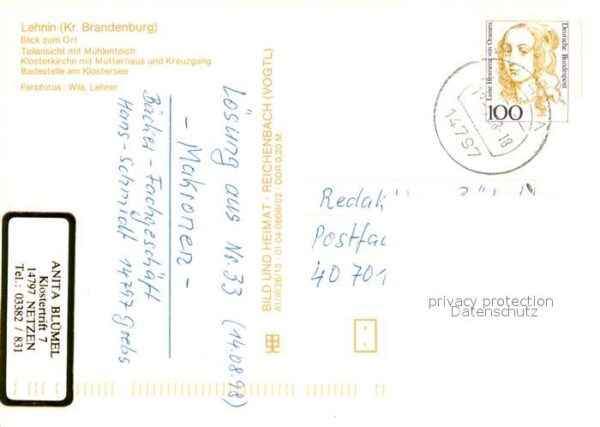 Lehnin (Kr. Brandenburg)
Blick zum Ort
Teilansicht mit Mühlenteich
Klosterkirche mit Mutterhaus und Kreuzgang
Badestelle am Klostersee
Farbfotos: Wils, Lehnin
Lösung aus Nr. 33 (14.08.98)
- Makronen -
Bäcker-Fachgeschäft
Hans-Schmidt 14797 Grebs
ANITA BLÜMEL
Klostertrift 7
14797 NETZEN
Tel.: 03382 / 831
BILD UND HEIMAT · REICHENBACH (VOGTL)
A1/III/26/13 · 01 04 0608/02 · DDR 0,20 M
Luise Henriette von Oranien
Deutsche Bundespost
100
14797
Postfac
40 701
privacy protection
Datenschutz